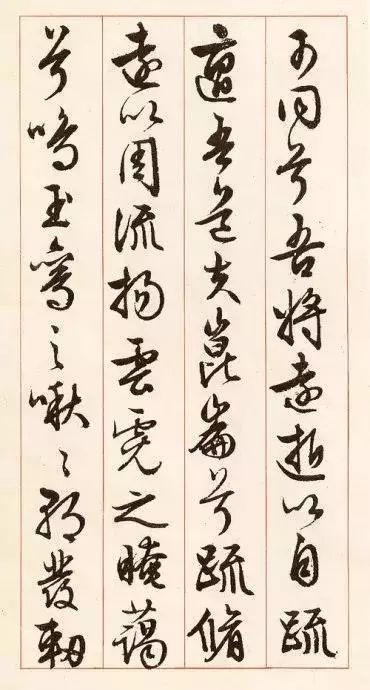 可同兮吾將遠逝以自疏
邅吾道夫崑崙兮疏脩
遠以周流揚雲霓之晻藹
兮鳴玉鸞之啾〻朝發軔